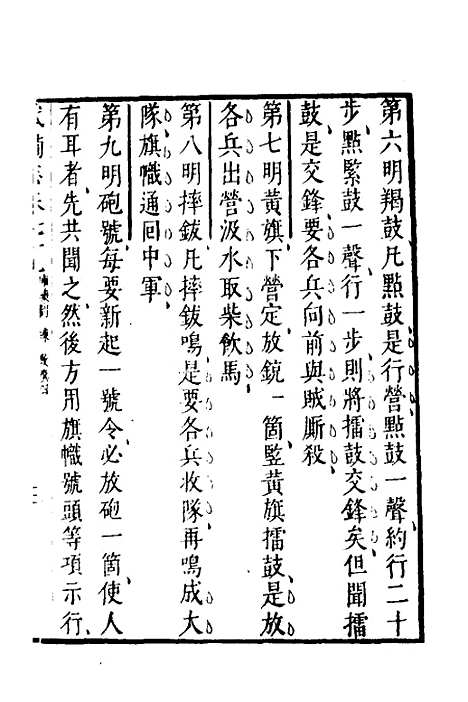 第六明羯鼓凡點鼓是行營點鼓一聲約行二十
步點緊鼓一聲行一步則將擂鼓交鋒矣但聞擂
鼓是交鋒要各兵向前與賊厮殺
第七明黃旗下營定放銃一箇竪黃旗擂鼓是放
各兵出營汲水取柴飲馬
第八明摔鈸凡摔鈸鳴是要各兵收隊再鳴成大
隊旗幟通回中軍
第九明砲號每要新起一號令必放砲一箇使人
有耳者先共聞之然後方用旗幟號頭等項示行